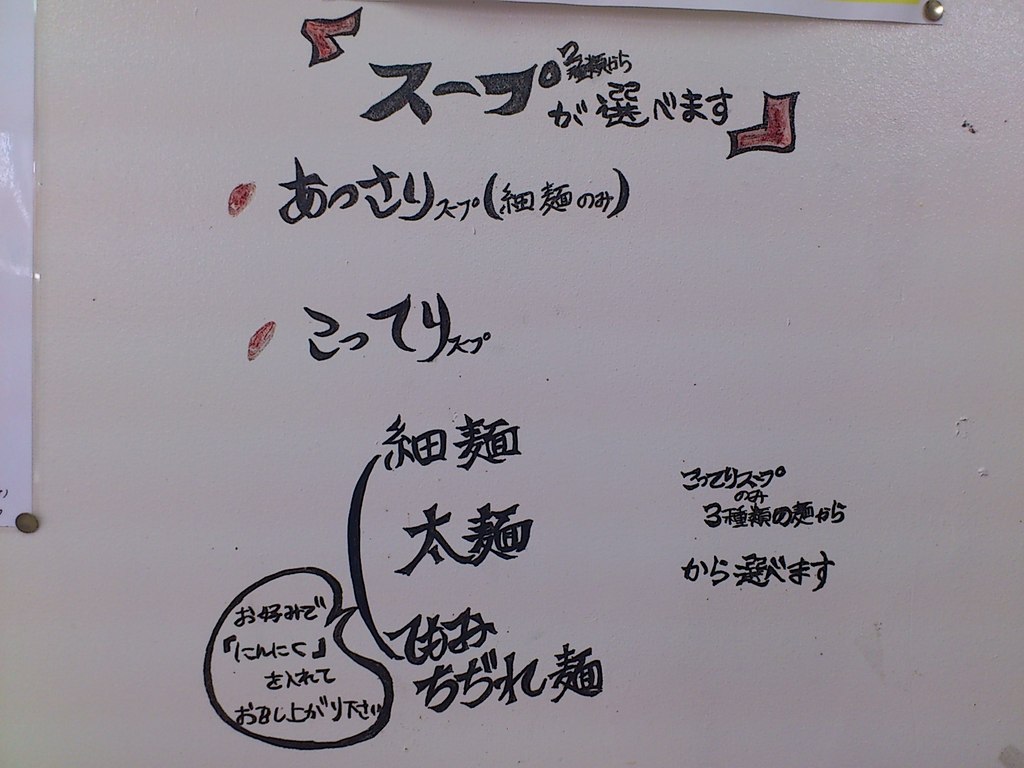 『スープ 2種類から
が選べます』
あっさりスープ(細麺のみ)
こってりスープ
細麺
太麺
てもみ
ちぢれ麺
こってりスープ
のみ
3種類の麺から
から選べます
お好みで
『にんにく』
を入れて
お召し上がり下さい